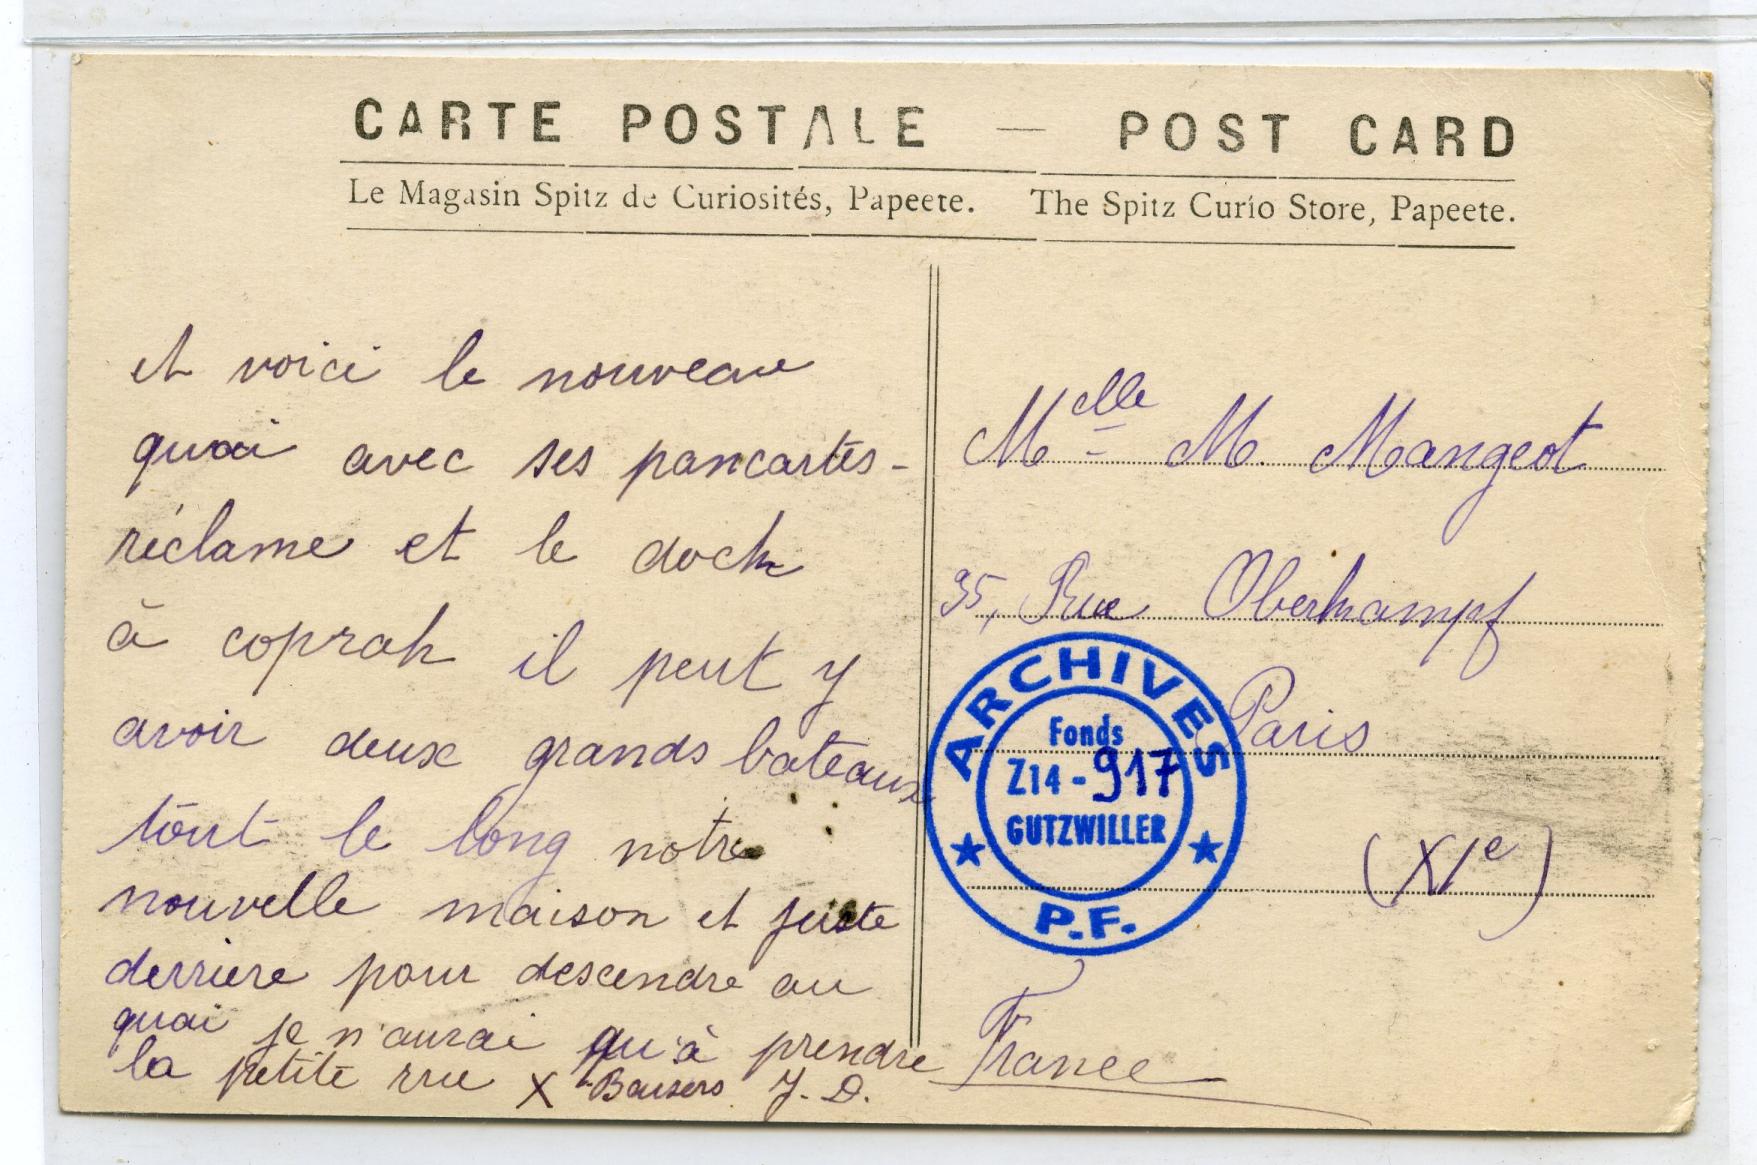 CARTE POSTALE — POST CARD
Le Magasin Spitz de Curiosités, Papeete. The Spitz Curio Store, Papeete.
et voici le nouveau
quai avec ses pancartes-
réclame et le dock
à coprah il peut y
avoir deux grands bateaux
tout le long notre
nouvelle maison et juste
derrière pour descendre au
quai je n'aurai qu'à prendre
la petite rue X Baisers J. D.
Melle M. Mangeot
35, Rue Oberkampf
Paris
(XIe)
France
ARCHIVES
Fonds
Z14-917
GUTZWILLER
P.F.